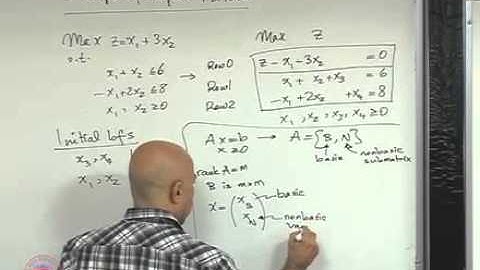 Max z = x₁ + 3x₂
s.t.
x₁ + x₂ ≤ 6
-x₁ + 2x₂ ≤ 8
x₁, x₂ ≥ 0
→ Row0
Row1
Row2
Max z
z - x₁ - 3x₂ = 0
x₁ + x₂ + x₃ = 6
-x₁ + 2x₂ + x₄ = 8
x₁, x₂, x₃, x₄ ≥ 0
Initial bfs
x₃, x₄
x₁, x₂
Ax = b → A = [B, N]
x ≥ 0
basis
nonbasic
submatrix
rank A = m
B is m×m
x = (x_B
x_N)
basic
nonbasic